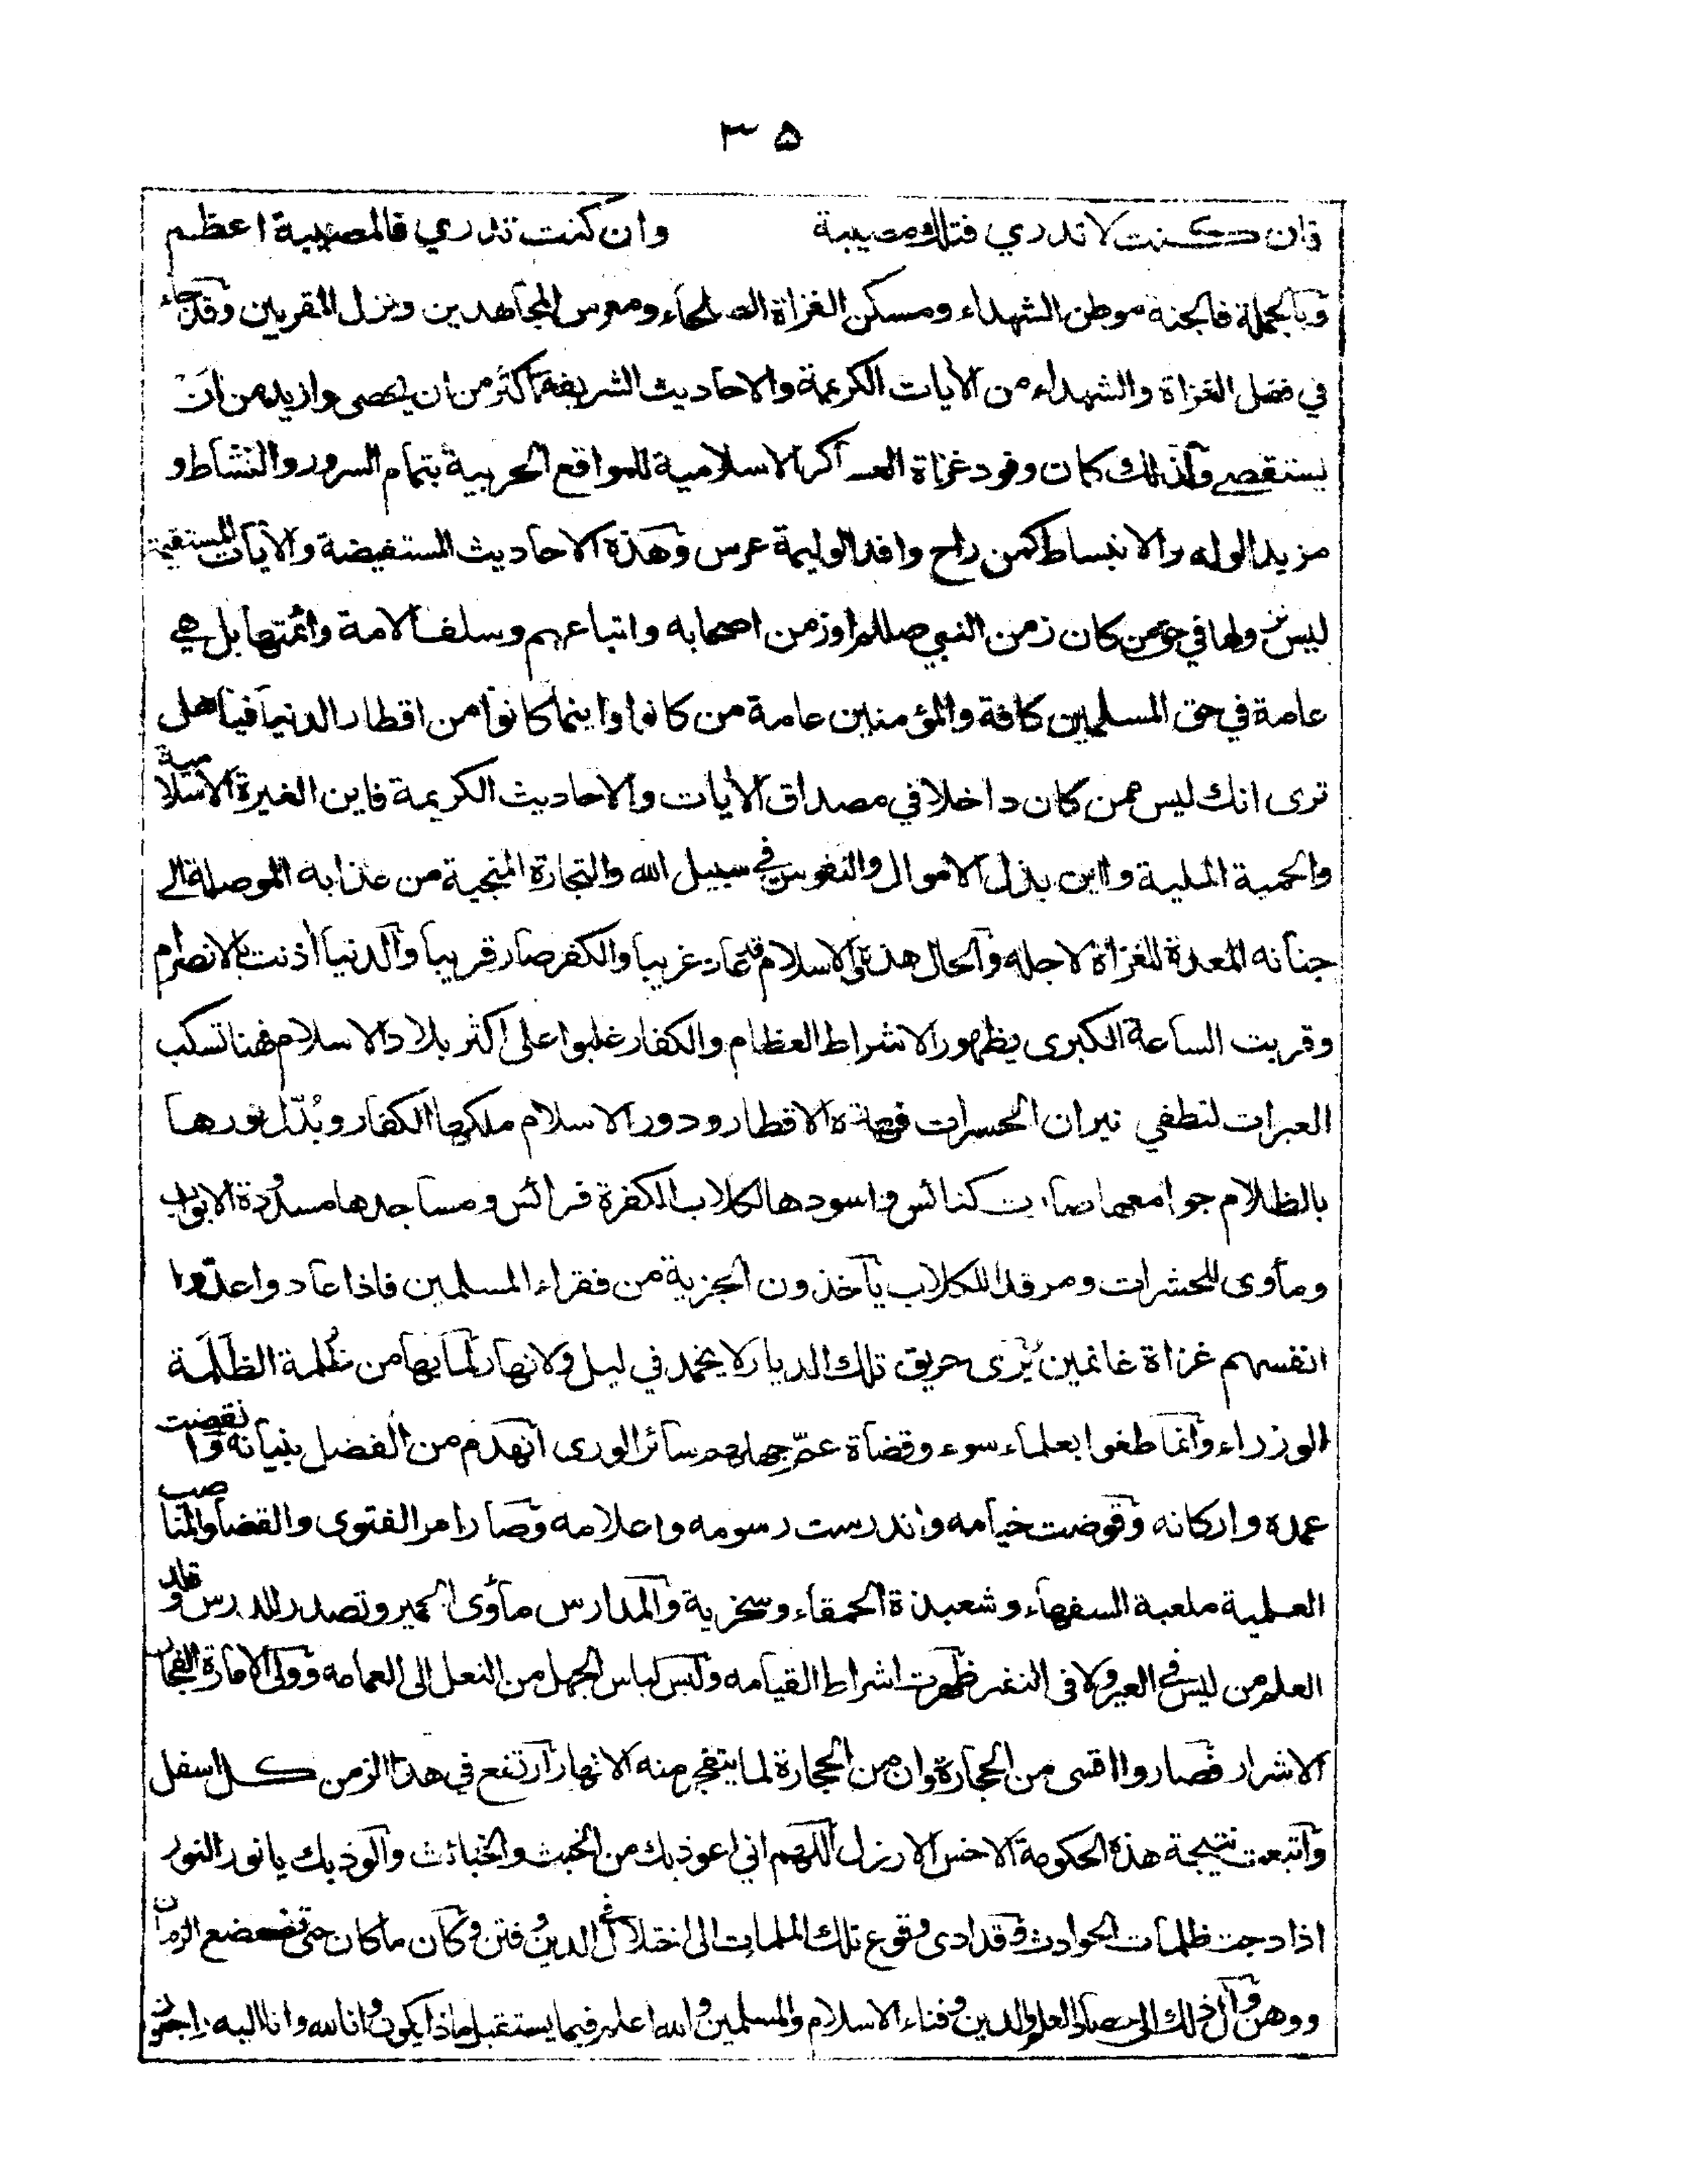 ٣٥
فان كنت لا تدري فتلك مصيبة وان كنت تدري فالمصيبة اعظم
وبالجملة فالجنة موطن الشهداء ومسكن الغزاة الصلحاء ومعرس المجاهدين ونزل المقربين وقد جاء
في فضل الغزاة والشهداء من الآيات الكريمة والاحاديث الشريفة أكثر من ان يحصى وازيد من ان
يستقصى ولذلك كان وفود غزاة العساكر الاسلامية للمواقع الحربية بتمام السرور والنشاط و
مزيد الوله والانبساط كمن راح وافدا لوليمة عرس وهذه الاحاديث المستفيضة والآيات المستقيمة
ليس نزولها في حق من كان زمن النبي صللم او زمن اصحابه واتباعهم وسلف الامة وائمتها بل هي
عامة في حق المسلمين كافة والمؤمنين عامة من كانوا واينما كانوا من اقطار الدنيا فيا هل
ترى انك ليس ممن كان داخلا في مصداق الآيات والاحاديث الكريمة فاين الغيرة الاسلامية
والحمية الملية واين بذل الاموال والنفوس في سبيل الله والتجارة المنجية من عذابه الموصلة الى
جنانه المعدة للغزاة لاجله والحال هذه الاسلام قد عاد غريبا والكفر صار قريبا والدنيا أذنت بالانصرام
وقربت الساعة الكبرى بظهور الاشراط العظام والكفار غلبوا على اكثر بلاد الاسلام فهنا تسكب
العبرات لتطفي نيران الحسرات فهذه الاقطار ودور الاسلام ملكها الكفار وبُدّل نورها
بالظلام جوامعها صارت كنائس واسودها لكلاب الكفرة فرائس ومساجدها مسدودة الابواب
ومأوى للحشرات ومرقدا للكلاب يأخذون الجزية من فقراء المسلمين فاذا عادوا عدّوا
انفسهم غزاة غانمين يُرى حريق تلك الديار لا يخمد في ليل ولا نهار لما بها من ظُلمة الظَلَمة
الوزراء وانما طغوا بعلماء سوء وقضاة عمّ جهلهم سائر الورى انهدم من الفضل بنيانه وانقضت
عمده واركانه وقوضت خيامه واندرست رسومه واعلامه وصار امر الفتوى والقضا والمناصب
العلمية ملعبة السفهاء وشعبذة الحمقاء وسخرية والمدارس مأوى الحمير وتصدر للدرس وقلد
العلم من ليس في العير ولا في النفير ظهرت اشراط القيامه ولبس لباس الجهل من النعل الى العمامه وولى الامارة الفجار
الاشرار فصاروا اقسى من الحجارة وان من الحجارة لما يتفجر منه الانهار ارتفع في هذا الزمن كل اسفل
واتبعت نتيجة هذه الحكومة الاخس الارزل اللهم اني اعوذ بك من الخبث والخبائث والوذ بك يا نور النور
اذا دجت ظلمات الحوادث وقد ادى وقوع تلك الملمات الى اختلال في الدين وفتن وكان ما كان حتى تضعضع الزمان
ووهن وآل ذلك الى العلم والدين وفناء الاسلام والمسلمين والله اعلم فيما يستقبل ماذا يكون وانا لله وانا اليه راجعون